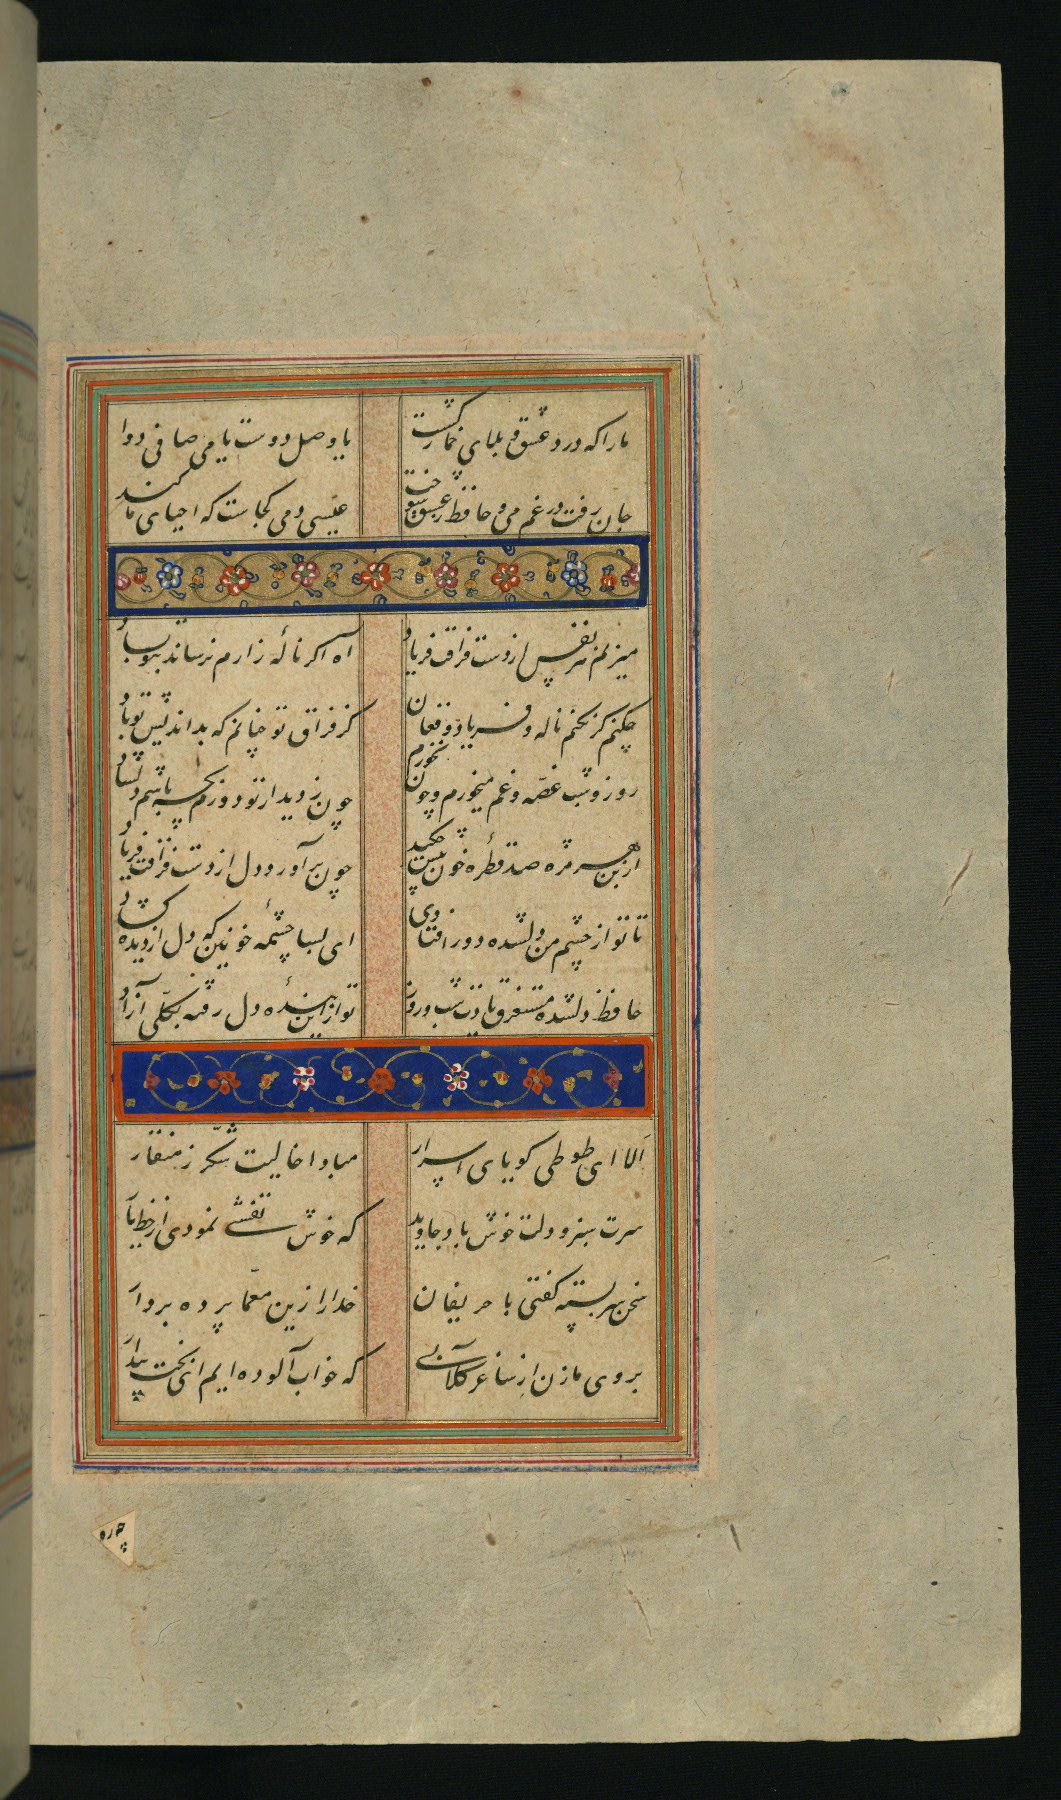 ما را که درد عشق و بلای خمار کشت یا وصل دوست یا می صافی دوا کند
جان رفت در غم می و حافظ ز عشق سوخت عیسی دمی کجاست که احیای ما کند
میزنم هر نفس از دست فراقت فریاد آه اگر ناله زارم نرساند بتو باد
چکنم گر نکنم ناله و فریاد و فغان کز فراق تو چنانم که بداندیش تو باد
روز و شب غصه و غم میخورم و چون نخورم چون ز دیدار تو دورم بچه باشم دلشاد
از بن هر مژه صد قطره خون بیش چکید چون برآورد دل از دست فراقت فریاد
تا تو از چشم من دلشده دور افتادی ای بسا چشمه خونین که دل از دیده گشاد
حافظ دلشده مستغرق یادت شب و روز تو ازین بنده دل رفته بکلی آزاد
الا ای طوطی گویای اسرار مبادا خالیت شکر ز منقار
سرت سبز و دلت خوش باد جاوید که خوش نقشی نمودی از خط یار
سخن سربسته گفتی با حریفان خدا را زین معما پرده بردار
بروی ما زن از ساغر گلابی که خواب آلوده ایم ای بخت بیدار